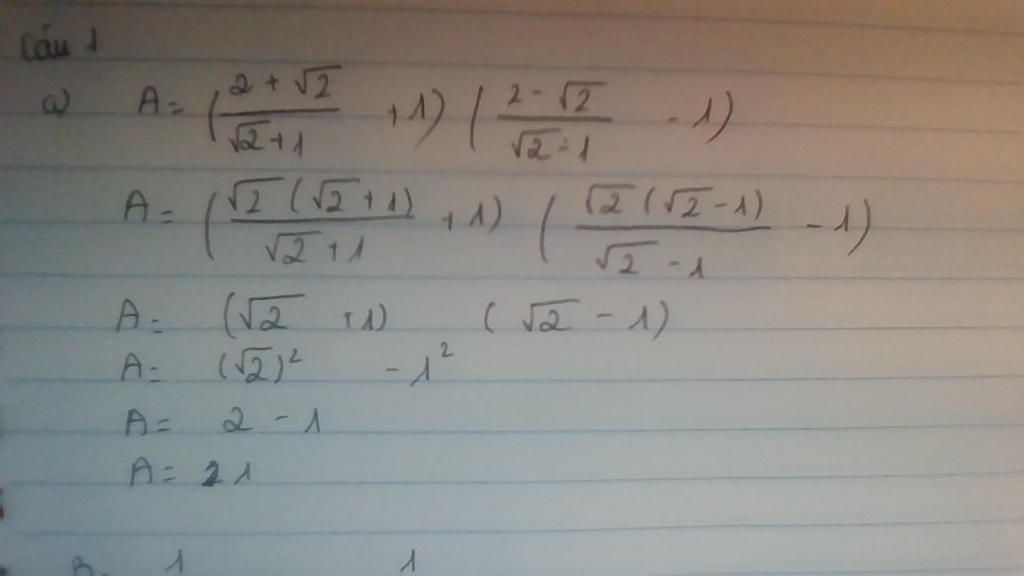 Câu 1
a) A = ( (2 + √2)/(√2 + 1) + 1) ( (2 - √2)/(√2 - 1) - 1)
A = ( (√2 (√2 + 1))/(√2 + 1) + 1) ( (√2 (√2 - 1))/(√2 - 1) - 1)
A = (√2 + 1) (√2 - 1)
A = (√2)² - 1²
A = 2 - 1
A = 1
1 1